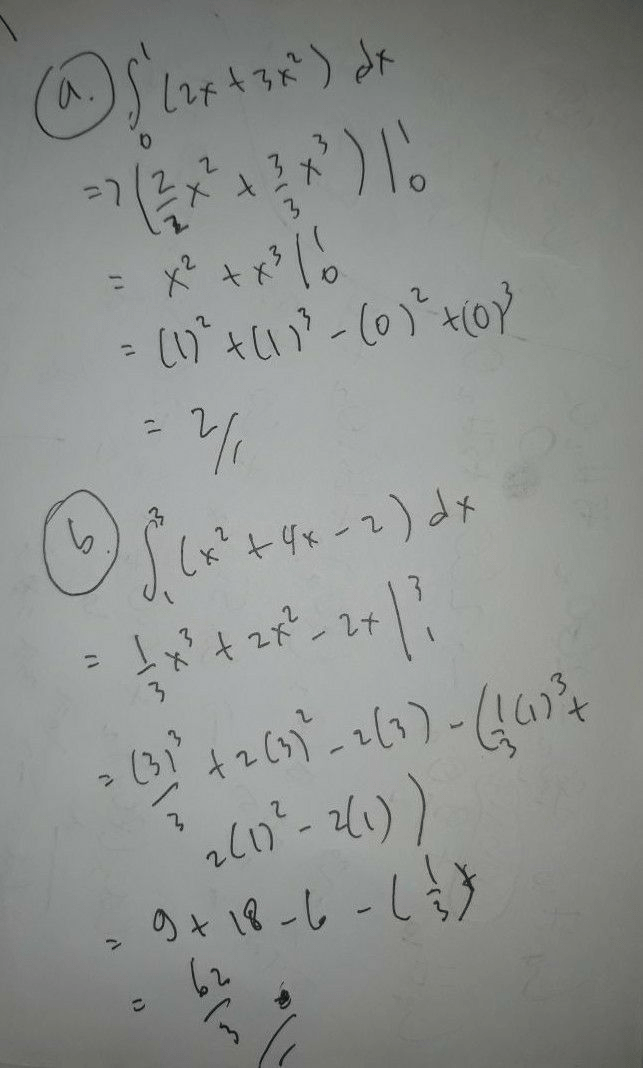 a. ∫₀¹ (2x + 3x²) dx
=> (2/2 x² + 3/3 x³) |₀¹
= x² + x³ |₀¹
= (1)² + (1)³ - (0)² + (0)³
= 2 //
b. ∫₁³ (x² + 4x - 2) dx
= 1/3 x³ + 2x² - 2x |₁³
= (3)³/3 + 2(3)² - 2(3) - (1/3 (1)³ +
2(1)² - 2(1))
= 9 + 18 - 6 - (1/3)
= 62/3 //